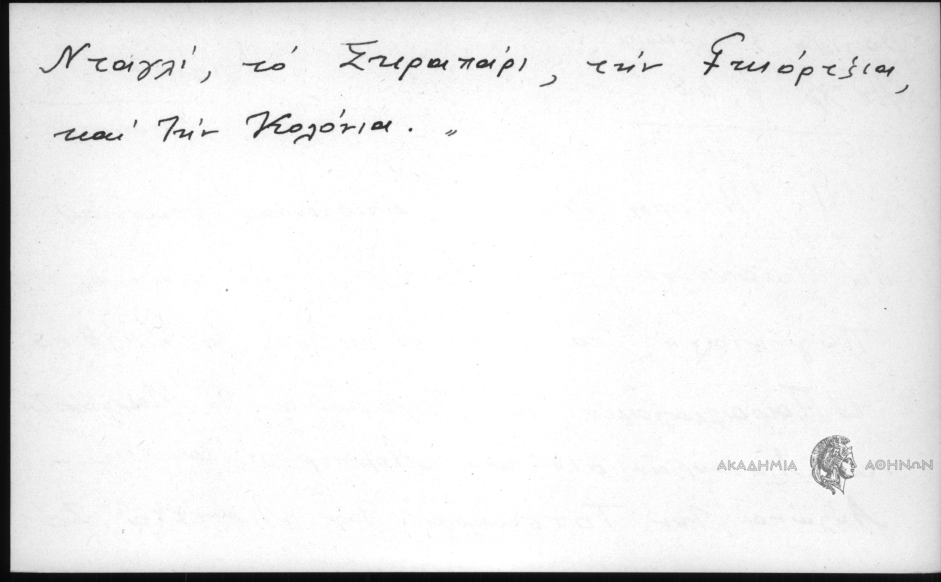 Νταγλί, τό Σκραπάρι, τήν Γκιόρτζια,
καί τήν Κολόνια. „
ΑΚΑΔΗΜΙΑ ΑΘΗΝΩΝ